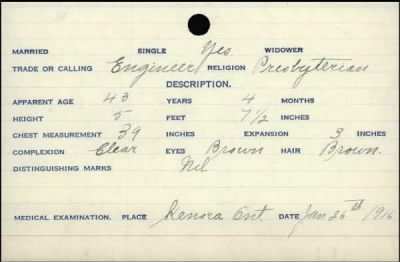 MARRIED SINGLE Yes. WIDOWER
TRADE OR CALLING Engineer RELIGION Presbyterian
DESCRIPTION.
APPARENT AGE 43 YEARS 4 MONTHS
HEIGHT 5 FEET 7 1/2 INCHES
CHEST MEASUREMENT 39 INCHES EXPANSION 3 INCHES
COMPLEXION Clear EYES Brown HAIR Brown.
DISTINGUISHING MARKS Nil.
MEDICAL EXAMINATION. PLACE Kenora Ont. DATE Jan 26th 1916